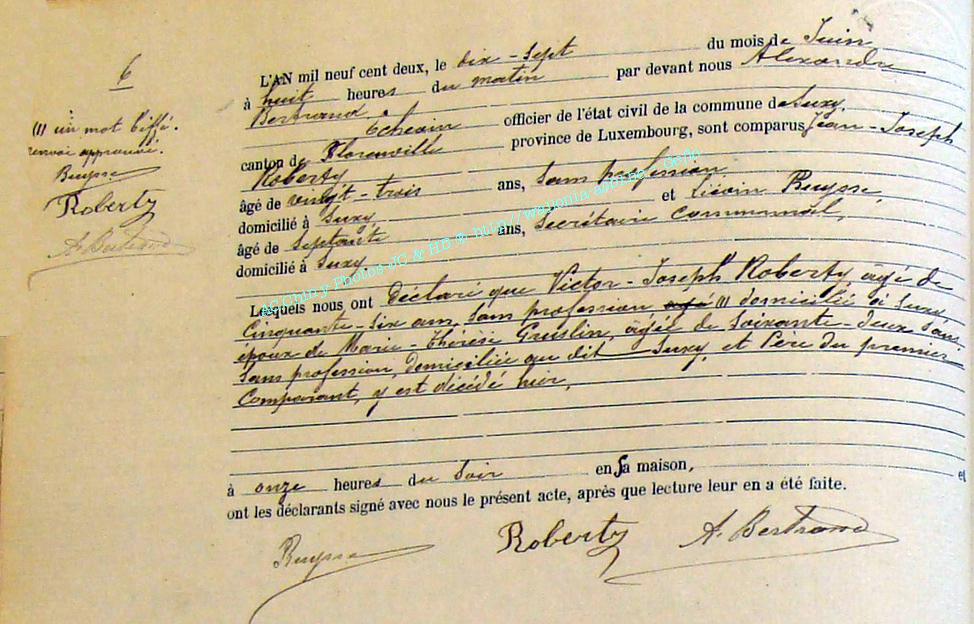 6
(1) un mot biffé.
renvoi approuvé.
Ruysse
Roberty
A. Bertrand
L'AN mil neuf cent deux, le dix-sept du mois de Juin
à huit heures du matin par devant nous Alexandre
Bertrand, Echevin officier de l'état civil de la commune de Suxy,
canton de Florenville province de Luxembourg, sont comparus Jean-Joseph
Roberty
âgé de vingt-trois ans, sans profession
domicilié à Suxy et Liévin Ruysse,
âgé de septante ans, Secrétaire Communal,
domicilié à Suxy
Lesquels nous ont Déclaré que Victor-Joseph Roberty âgé de
Cinquante-six ans, sans profession (1) domicilié à Suxy
époux de Marie-Thérèse Guislin, âgée de Soixante-deux ans,
sans profession, domiciliée au dit Suxy, et Père du premier
Comparant, y est décédé hier,
à onze heures du soir en sa maison, et
ont les déclarants signé avec nous le présent acte, après que lecture leur en a été faite.
Ruysse Roberty A. Bertrand